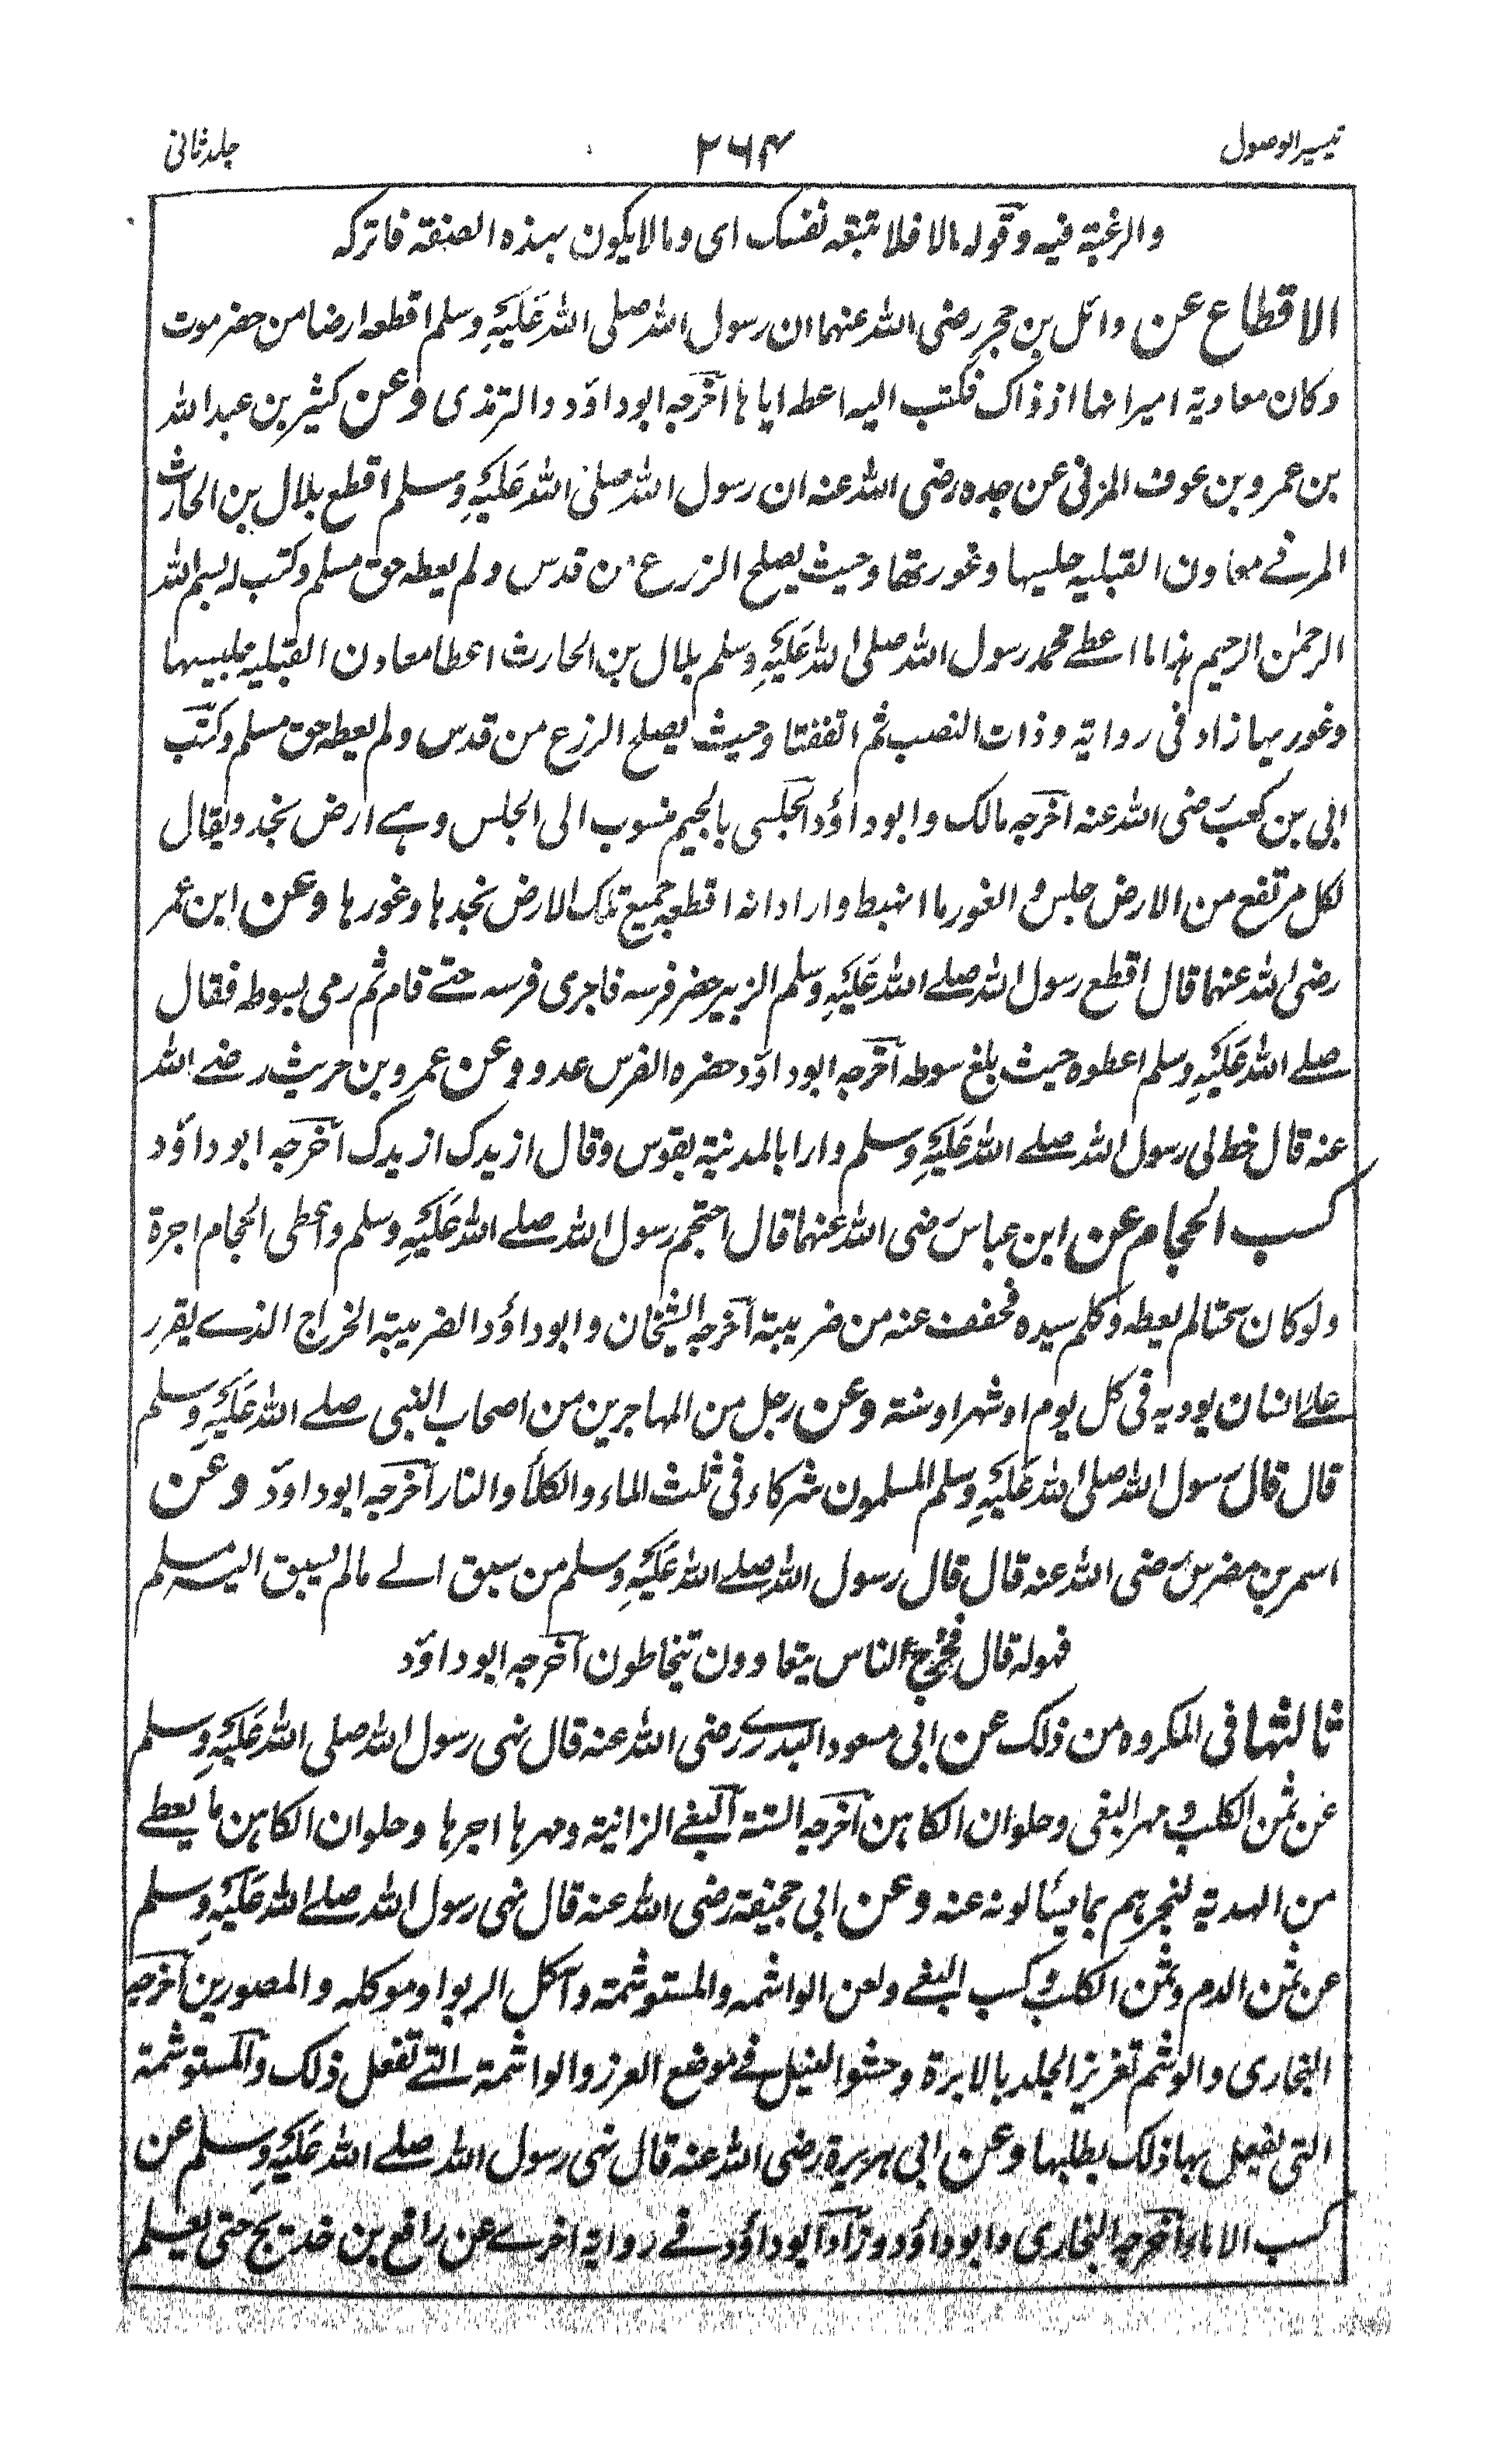 تيسير الوصول
۲۶۴
جلد ثانى
والرغبة فيه وقوله مالا فلا تتبعه نفسك اى ومالا يكون بهذه الصنفة فاتركه
الاقطاع عن وائل بن حجر رضى الله عنهما ان رسول الله صلى الله عليه وسلم اقطعه ارضا من حضرموت
وكان معاوية اميرا بها اذ ذاك فكتب اليه اعطه اياها اخرجه ابوداؤد والترمذى وعن كثير بن عبدالله
بن عمرو بن عوف المزنى عن جده رضى الله عنه ان رسول الله صلى الله عليه وسلم اقطع بلال بن الحارث
المزنى معاون القبلية جلسيها وغوريتها وحيث يصلح الزرع من قدس ولم يعطه حق مسلم وكتب له بسم الله
الرحمٰن الرحيم هذا ما اعطى محمد رسول الله صلى الله عليه وسلم بلال بن الحارث اعطا معادن القبلية جلسيها
وغوريها زاد فى رواية وذات النصب ثم اتفقتا وحيث يصلح الزرع من قدس ولم يعطه حق مسلم وكتب
ابى بن كعب رضى الله عنه اخرجه مالك وابوداؤد الجلسى بالجيم منسوب الى الجلس وهى ارض نجد ويقال
لكل مرتفع من الارض جلس و الغور ما انهبط واراد انه اقطعه جميع تلك الارض نجدها وغورها وعن ابن عمر
رضى الله عنهما قال اقطع رسول الله صلى الله عليه وسلم الزبير حضر فرسه فاجرى فرسه حتى قام ثم رمى بسوطه فقال
صلى الله عليه وسلم اعطوه حيث بلغ سوطه اخرجه ابوداؤد حضره الفرس عدوه وعن عمرو بن حريث رضى الله
عنه قال خط لى رسول الله صلى الله عليه وسلم دارا بالمدينة بقوس وقال ازيدك ازيدك اخرجه ابوداؤد
كسب الحجام عن ابن عباس رضى الله عنهما قال احتجم رسول الله صلى الله عليه وسلم واعطى الحجام اجرة
ولو كان سحتا لم يعطه وكلم سيده فخفف عنه من ضريبته اخرجه الشيخان وابوداؤد الضريبة الخراج الذى يقرر
على انسان يوديه فى كل يوم او شهر او سنة وعن رجل من المهاجرين من اصحاب النبى صلى الله عليه وسلم
قال قال رسول الله صلى الله عليه وسلم المسلمون شركاء فى ثلث الماء والكلأ والنار اخرجه ابوداؤد وعن
اسمر بن مضرس رضى الله عنه قال قال رسول الله صلى الله عليه وسلم من سبق الى مالم يسبق اليه مسلم
فهو له قال فخرج الناس يتعادون يتخاطون اخرجه ابوداؤد
ثالثها فى المكروه من ذلك عن ابى مسعود البدرى رضى الله عنه قال نهى رسول الله صلى الله عليه وسلم
عن ثمن الكلب و مهر البغى وحلوان الكاهن اخرجه الستة البغى الزانية ومهرها اجرها وحلوان الكاهن ما يعطى
من الهدية ليخبرهم بما يسألونه عنه وعن ابى جحيفة رضى الله عنه قال نهى رسول الله صلى الله عليه وسلم
عن ثمن الدم وثمن الكلب و كسب البغى ولعن الواشمه والمستوشمة وآكل الربوا وموكله والمصورين اخرجه
البخارى والوشم تغريز الجلد بالابرة وحشوا النيل فى موضع الغرز والواشمة التى تفعل ذلك والمستوشمة
التى يفعل بها ذلك بطلبها وعن ابى هريرة رضى الله عنه قال نهى رسول الله صلى الله عليه وسلم عن
كسب الاماء اخرجه البخارى وابوداؤد وزاد ابوداؤد فى رواية اخرى عن رافع بن خديج حتى يعلم